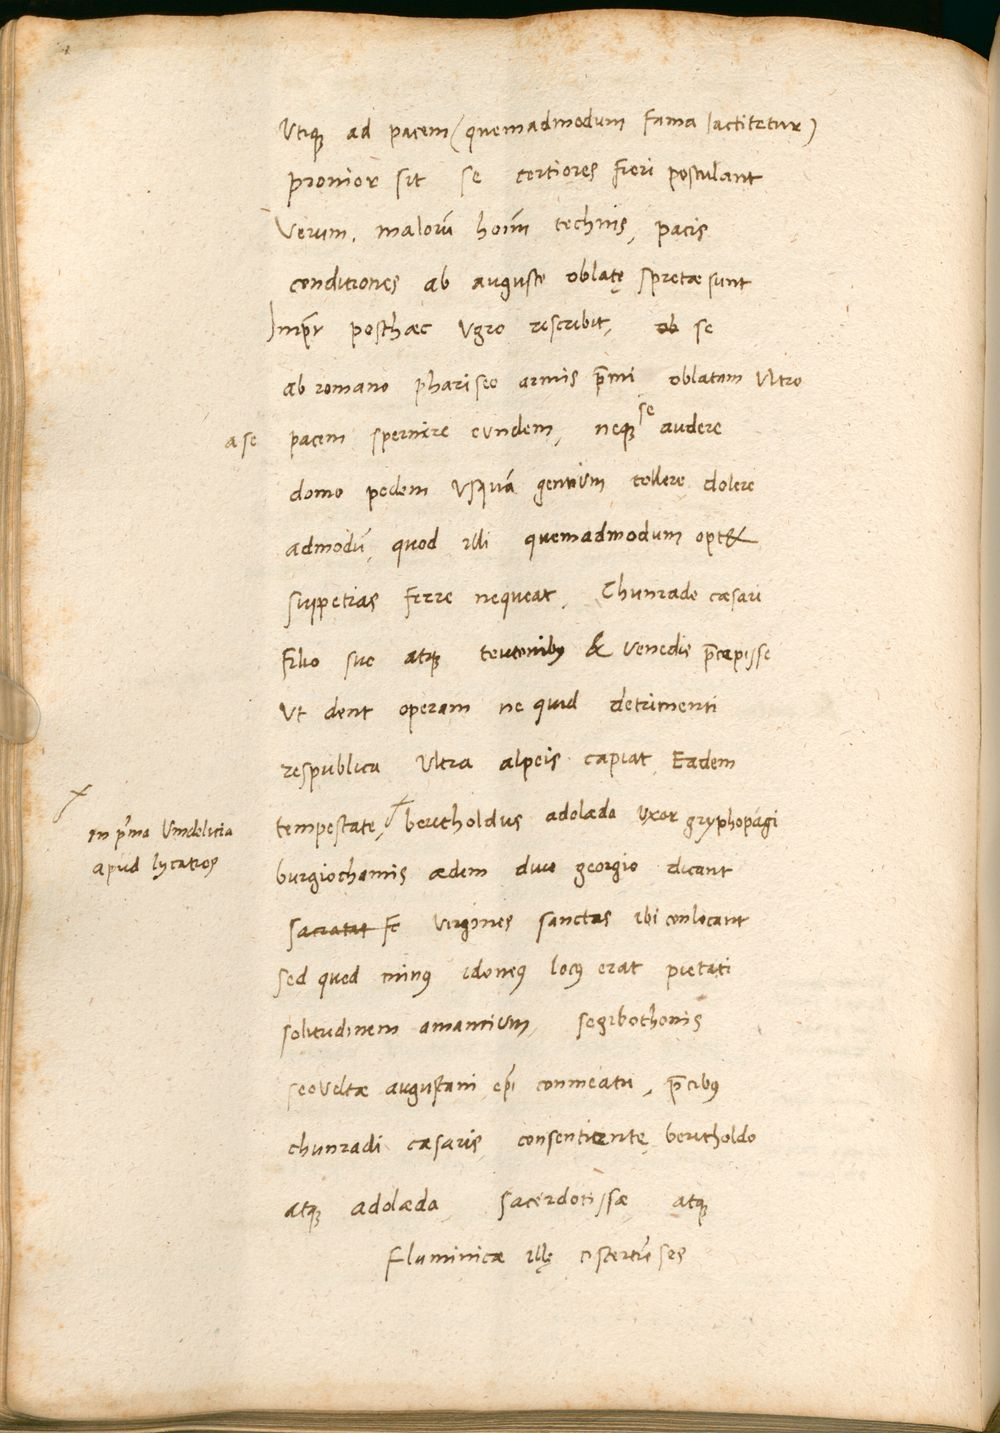 Utiqꝫ ad pacem (quemadmodum fama iactitatur)
pronior sit se certiores fieri postulant
Verum, malorũ hoĩm technis, pacis
conditiones ab augusto oblatę spretæ sunt
Imꝑr posthæc Ugro rescribit, se
ab romano phariseo armis p̄mi oblatam Ultro
a se pacem spernere eundem, neqꝫ se audere
domo pedem Usquã gentium tollere dolere
admodũ, quod illi quemadmodum optet
suppetias ferre nequeat, Chunrado cæsari
filio suo atqꝫ teutonibꝰ & Venedis p̄cepisse
Ut dent operam ne quid detrimenti
respublica Ultra alpeis capiat Eadem
tempestate, bertholdus adolæda Uxor gryphopagi
In p̃ma Vindelicia
apud lycatios
burgiochamis ædem divo georgio dicant
Virgines sanctas ibi conlocant
sed quod minꝰ idoneꝰ locꝰ erat pietati
solitudinem amantium, segibothonis
seoveltæ augustani ep̃i conmeatu, p̄cibꝰ
chunradi cæsaris, consentientę bertholdo
atqꝫ adolæda, sacerdotissæ atqꝫ
Fluminicæ illę cistertiẽses